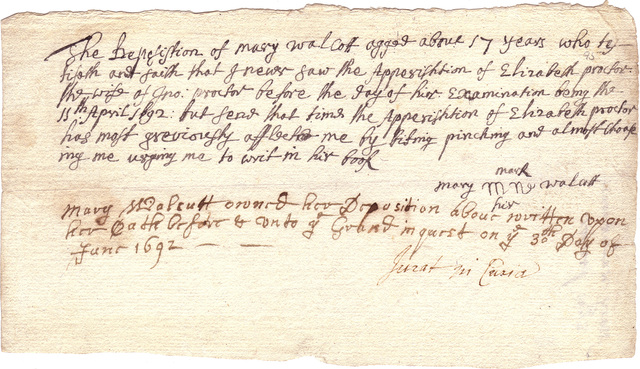 The Deposistion of mary walcott agged about 17 years who te
tifieth and saith that I never saw the Apperishtion of Elizabeth procter
the wife of Jno: proctor before the day of hir Examination being the
11th April 1692: but send that time the Apperishtion of Elizabeth procter
has most greviously afflected me by biting pinching and almost choak
ing me urging me to writ in hir book
mark
mary MW walcott
hir
mary Walcutt owned her Deposition above written upon
her Oath before & unto ye Grand inquest on ye 30th Day of
June 1692
Jurat in Curia